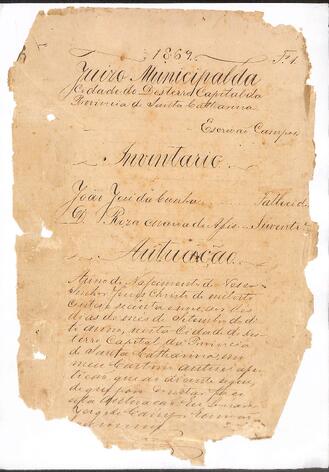 1869. Fl.
Juizo Municipal da
Cidade do Desterro Capital da
Provincia de Santa Catharina
Escrivão Campos
Inventario
João José da Cunha Fallecido
D. Roza Maria de Invent
Autuação
Anno do Nascimento de Nosso
Senhor Jesus Christo de mil oito
centos sessenta e nove aos
dias do mes de Setembro do di
to anno, nesta Cidade do Des
terro Capital da Provincia
de Santa Catharina, em
meu Cartorio autuei a pe
tição que ao diante segue,
do que
esta autuacão Eu
Jorge de Campos